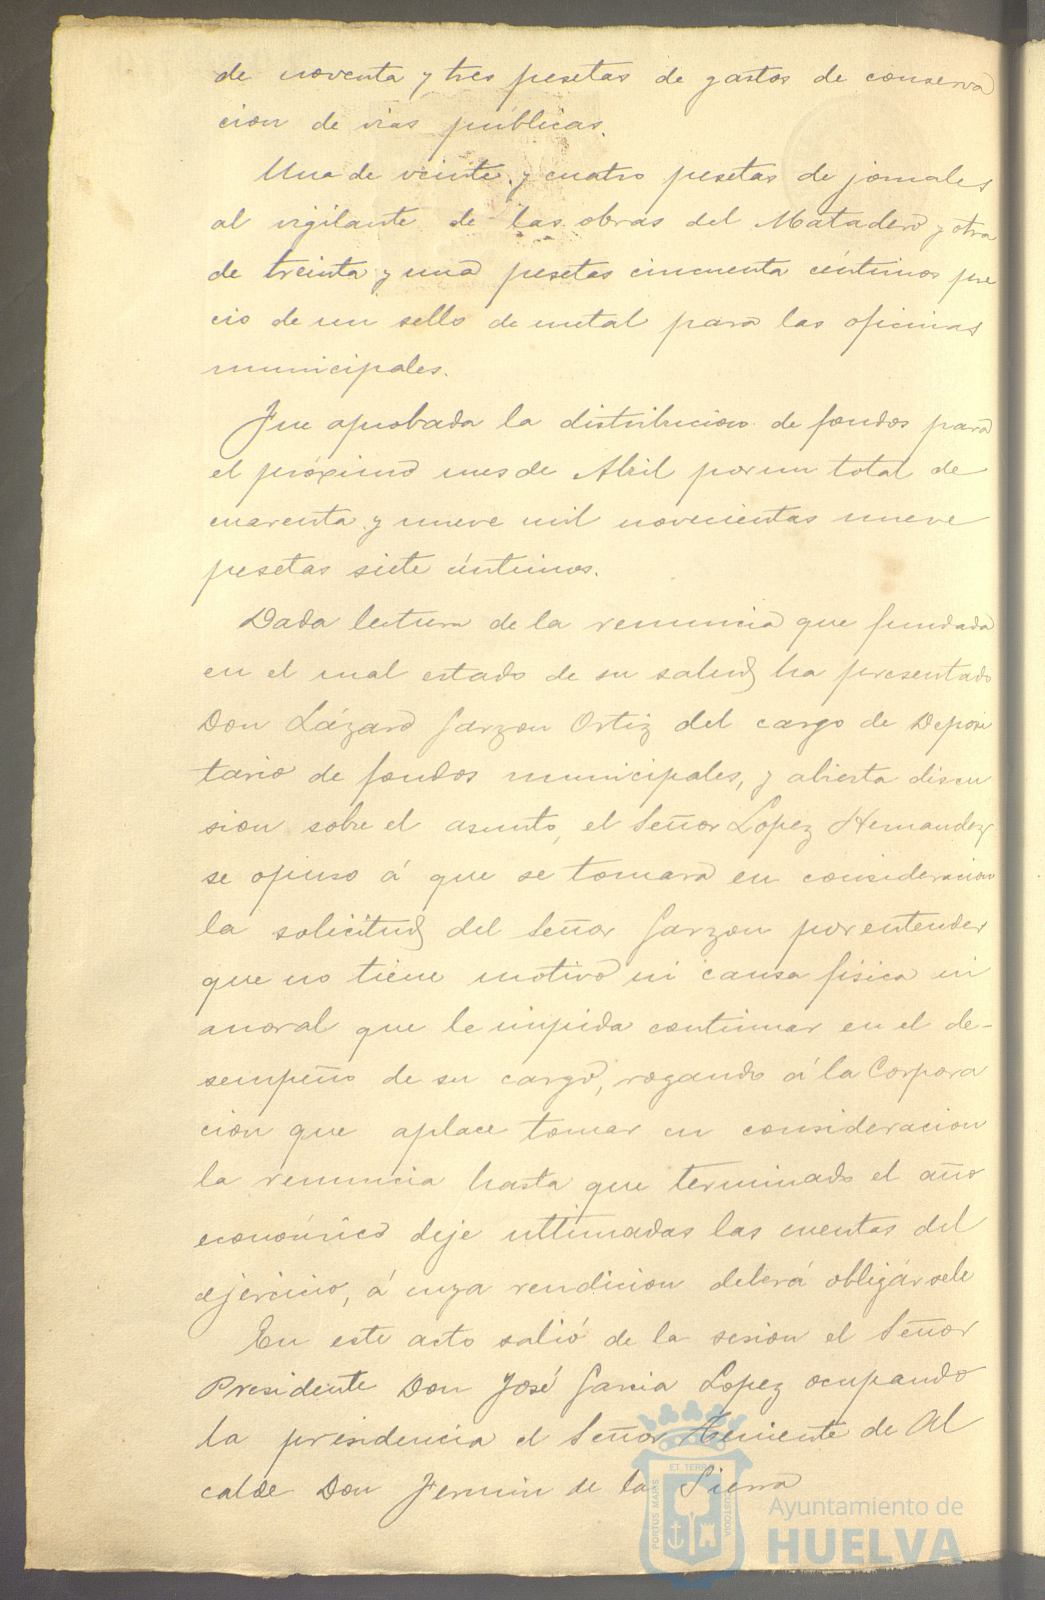 de noventa y tres pesetas de gastos de conserva
cion de vias públicas.
Una de veinte y cuatro pesetas de jornales
al vigilante de las obras del Matadero y otra
de treinta y una pesetas cincuenta céntimos pre
cio de un sello de metal para las oficinas
municipales.
Fue aprobada la distribucion de fondos para
el próximo mes de Abril por un total de
cuarenta y nueve mil novecientas nueve
pesetas siete céntimos.
Dada lectura de la renuncia que fundada
en el mal estado de su salud ha presentado
Don Lázaro Garzon Ortiz del cargo de Deposi
tario de fondos municipales, y abierta discu
sion sobre el asunto, el Señor Lopez Hernandez
se opuso á que se tomara en consideracion
la solicitud del Señor Garzon por entender
que no tiene motivo ni causa fisica ni
moral que le impida continuar en el de-
sempeño de su cargo, rogando á la Corpora
cion que aplace tomar en consideracion
la renuncia hasta que terminado el año
económico deje ultimadas las cuentas del
ejercicio, á cuya rendicion deberá obligársele
En este acto salió de la sesion el Señor
Presidente Don José Garcia Lopez ocupando
la presidencia el Señor Teniente de Al
calde Don Fermin de la Sierra
PORTUS MARIS ET TERRAE CUSTODIA
Ayuntamiento de
HUELVA